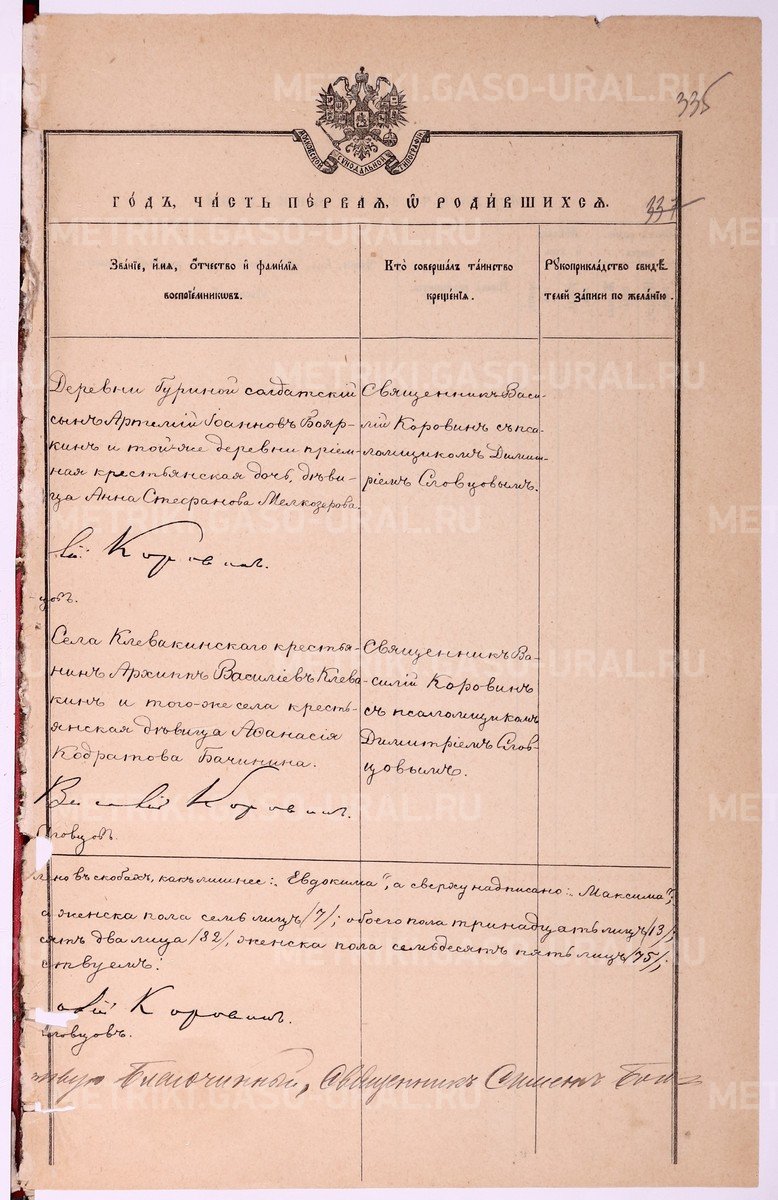 335
МОСКОВСКОЙ СѴНОДАЛЬНОЙ ТИПОГРАФІИ
ГО́ДЪ, ЧА́СТЬ ПЕ́РВАЯ, Ѽ РОДИ́ВШИХСЯ.
337
Зва́ніе, и́мя, о́тчество и҆ фами́лія
воспріе́мниковъ.
Кто̀ соверша́лъ та́инство
креще́нія.
Рꙋкоприкла́дство свидѣ́-
телей за́писи по жела́нію.
Деревни Гуриной солдатскій
сынъ Артемій Іоанновъ Бояр-
кинъ и той-же деревни пріем-
ная крестьянская дочь, дѣви-
ца Анна Стефанова Мелкозерова.
Священникъ Васи-
лій Коровинъ съ пса-
ломщикомъ Димит-
ріемъ Словцовымъ.
ій Коровинъ.
цовъ.
Села Клевакинскаго крестья-
нинъ Архиппъ Василіевъ Клева-
кинъ и того-же села кресть-
янская дѣвица Аѳанасія
Кодратова Бачинина.
Священникъ Ва-
силій Коровинъ
съ псаломщикомъ
Димитріемъ Слов-
цовымъ.
Василій Коровинъ.
Словцовъ.
лено въ скобахъ, какъ лишнее: „Евдокима“, а сверху надписано: „Максима“,
а женска пола семь лицъ /7/; обоего пола тринадцать лицъ /13/;
сятъ два лица /82/, женска пола семьдесятъ пять лицъ /75/;
ствуемъ:
илій Коровинъ.
Словцовъ.
Благочинный, Священникъ Симеонъ
METRIKI.GASO-URAL.RU